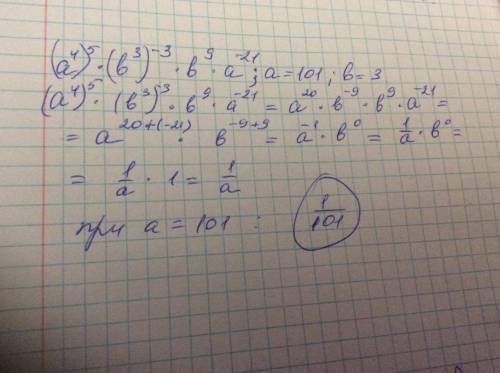 (a⁴)⁵ · (b³)⁻³ · b⁹ · a⁻²¹; a = 101; b = 3
(a⁴)⁵ · (b³)⁻³ · b⁹ · a⁻²¹ = a²⁰ · b⁻⁹ · b⁹ · a⁻²¹ =
= a²⁰⁺⁽⁻²¹⁾ · b⁻⁹⁺⁹ = a⁻¹ · b⁰ = 1/a · b⁰ =
= 1/a · 1 = 1/a
при a = 101 : 1/101